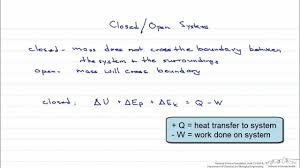 Closed/Open Systems
closed - mass does not cross the boundary between
the system + the surroundings
open - mass will cross boundary
closed: ΔU + ΔEp + ΔEk = Q - W
+ Q = heat transfer to system
- W = work done on system